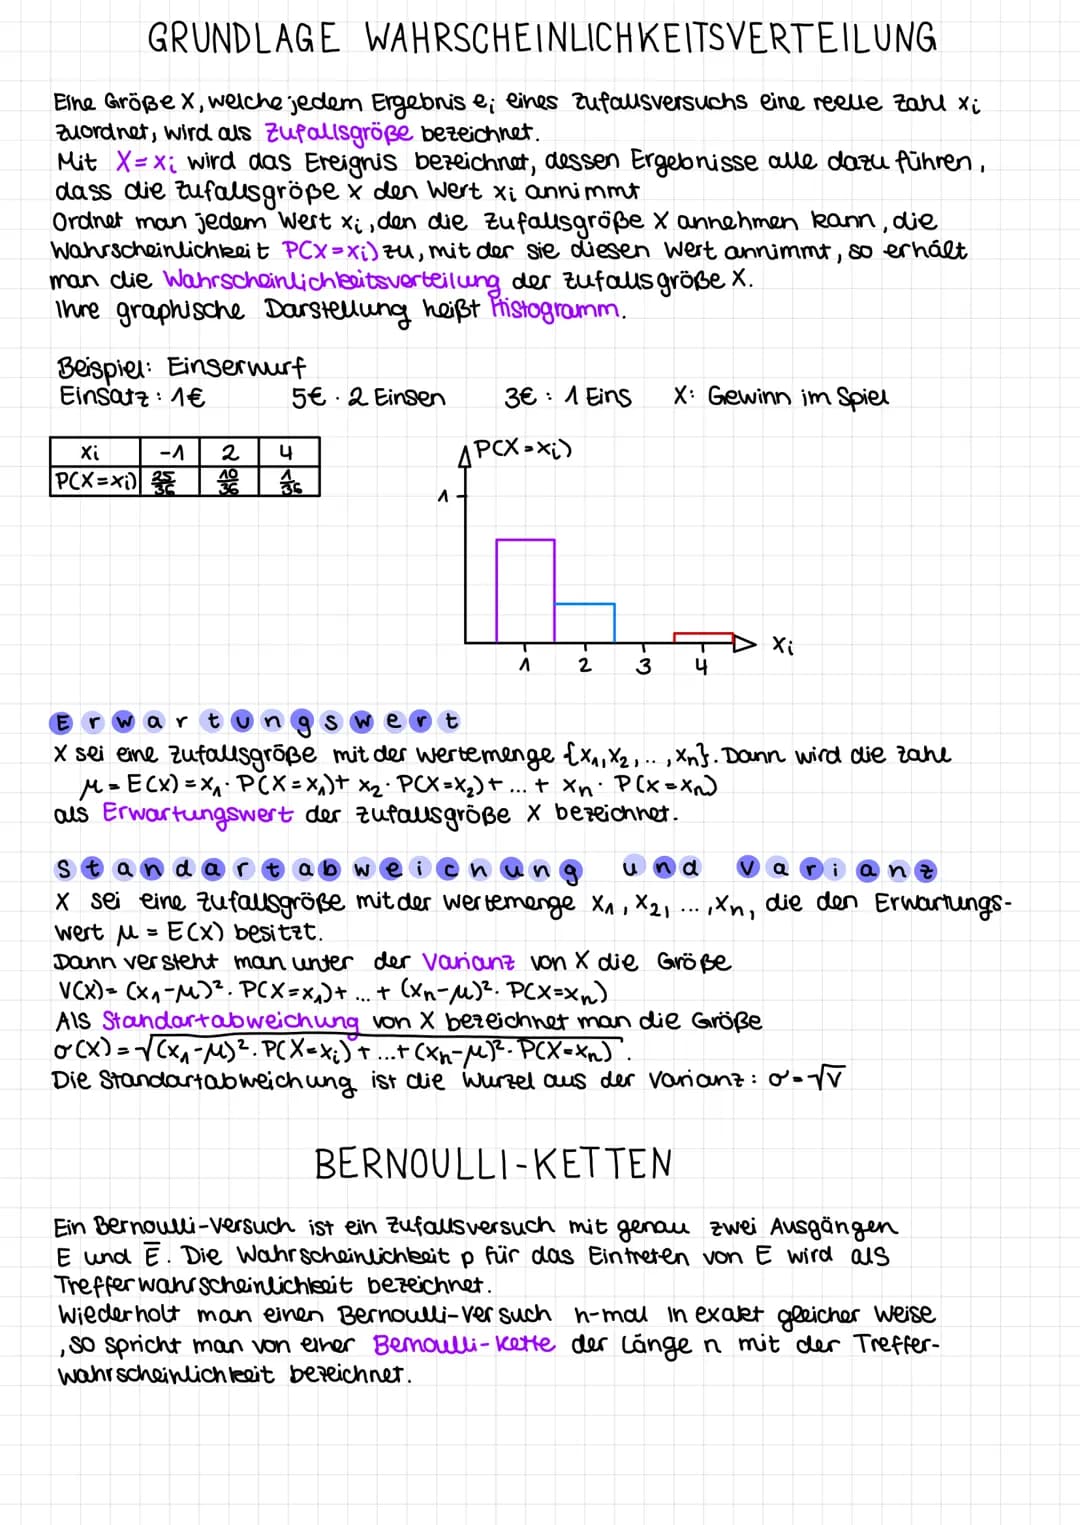 GRUNDLAGE WAHRSCHEINLICHKEITSVERTEILUNG
Eine Größe X, welche jedem Ergebnis ei eines Zufallsversuchs eine reelle Zahl xi
zuordnet, wird als Zufallsgröße bezeichnet.
Mit X=xi wird das Ereignis bezeichnet, dessen Ergebnisse alle dazu führen,
dass die Zufallsgröße x den Wert xi annimmt
Ordnet man jedem Wert xi, den die Zufallsgröße X annehmen kann, die
Wahrscheinlichkeit P(X=xi) zu, mit der sie diesen Wert annimmt, so erhält
man die Wahrscheinlichkeitsverteilung der Zufallsgröße X.
Ihre graphische Darstellung heißt Histogramm.
Beispiel: Einserwurf
Einsatz: 1€ 5€ · 2 Einsen 3€ : 1 Eins X: Gewinn im Spiel
xi -1 2 4
P(X=xi) 25/36 10/36 1/36
P(X=xi)
1
xi
1 2 3 4
Erwartungswert
X sei eine Zufallsgröße mit der Wertemenge {x₁,x₂, .. , xn}. Dann wird die Zahl
μ = E(X) = x₁· P(X=x₁)+ x₂· P(X=x₂)+ ... + xn· P(X=xn)
als Erwartungswert der Zufallsgröße X bezeichnet.
Standartabweichung und Varianz
X sei eine Zufallsgröße mit der Wertemenge x₁, x₂, ... ,xn, die den Erwartungs-
wert μ = E(X) besitzt.
Dann versteht man unter der Varianz von X die Größe
V(X)= (x₁-μ)². P(X=x₁)+ ... + (xn-μ)². P(X=xn)
Als Standartabweichung von X bezeichnet man die Größe
σ(X) = √(x₁-μ)². P(X=xi) + ...+ (xn-μ)². P(X=xn) .
Die Standartabweichung ist die Wurzel aus der Varianz: σ=√V
BERNOULLI-KETTEN
Ein Bernoulli-Versuch ist ein Zufallsversuch mit genau zwei Ausgängen
E und E̅. Die Wahrscheinlichkeit p für das Eintreten von E wird als
Trefferwahrscheinlichkeit bezeichnet.
Wiederholt man einen Bernoulli-Versuch n-mal in exakt gleicher Weise
, so spricht man von einer Bernoulli-Kette der Länge n mit der Treffer-
wahrscheinlichkeit bezeichnet.